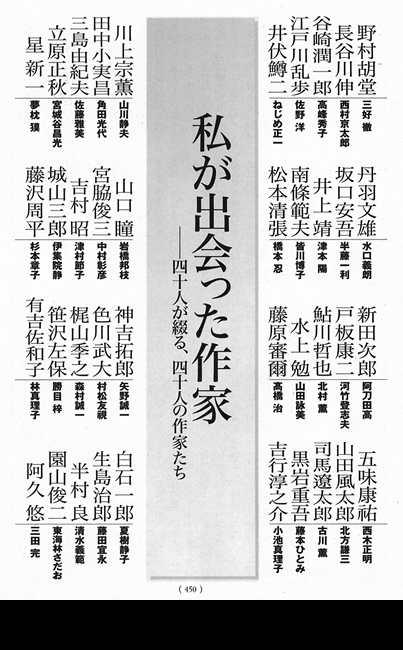 野村胡堂 三好 徹
長谷川伸 西村京太郎
谷崎潤一郎 高峰秀子
江戸川乱歩 佐野 洋
井伏鱒二 ねじめ正一
丹羽文雄 水口義朗
坂口安吾 半藤一利
井上 靖 津本 陽
南條範夫 皆川博子
松本清張 橋本 忍
新田次郎 阿刀田高
戸板康二 河竹登志夫
鮎川哲也 北村 薫
水上 勉 山田詠美
藤原審爾 高橋 治
五味康祐 西木正明
山田風太郎 北方謙三
司馬遼太郎 古川 薫
黒岩重吾 藤本ひとみ
吉行淳之介 小池真理子
私が出会った作家
――四十人が綴る、四十人の作家たち
川上宗薫 山川静夫
田中小実昌 角田光代
三島由紀夫 佐藤雅美
立原正秋 宮城谷昌光
星 新一 夢枕 獏
山口 瞳 岩橋邦枝
宮脇俊三 中村彰彦
吉村 昭 津村節子
城山三郎 伊集院静
藤沢周平 杉本章子
神吉拓郎 矢野誠一
色川武大 村松友視
梶山季之 森村誠一
笹沢左保 勝目 梓
有吉佐和子 林真理子
白石一郎 夏樹静子
生島治郎 藤田宜永
半村 良 清水義範
園山俊二 東海林さだお
阿久 悠 三田 完
(450)